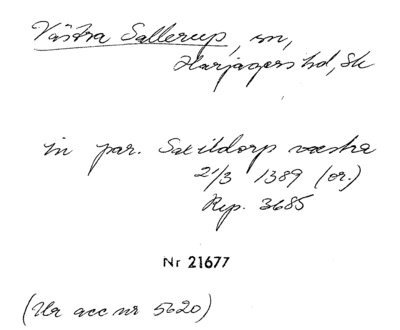 Västra Sallerup, sn,
Harjagers hd, Sk
in par. Saxildorp væstra
21/3 1389 (or.)
Rep. 3685
Nr 21677
(Ur acc nr 5620)